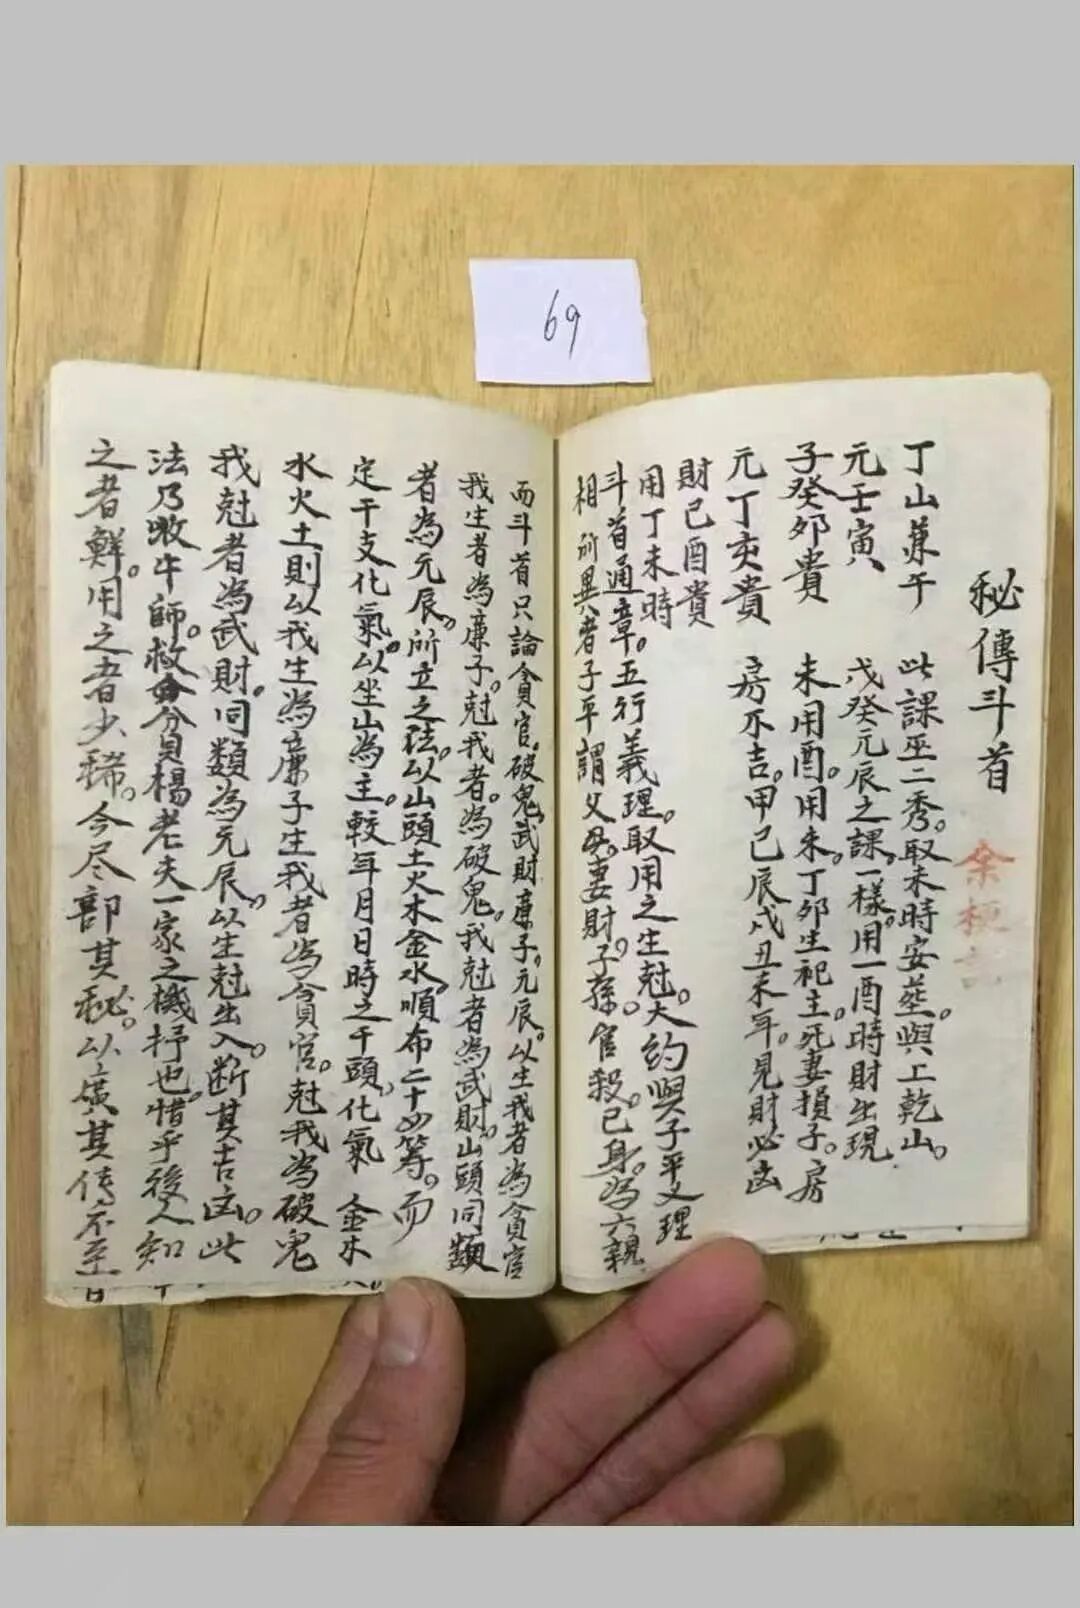 69
秘傳斗首
丁山兼午
此課巫二秀。取未時安塟。與上乾山。
元壬寅
戊癸元辰之課。一樣。用一酉時財出現
子癸卯貴
未用酉。用未。丁卯生祀主。死妻損子。房
元丁亥貴
房不吉。甲己辰戌丑未年。見財必凶
財己酉貴
用丁未時
斗首通章。五行義理。取用之生尅。大約與子平义理
相所異者子平謂父母。妻財。子孫。官殺。己身。為六親
而斗首只論貪官。破鬼。武財。廉子。元辰。以生我者為貪官
我生者為廉子。尅我者。為破鬼。我尅者為武財。山頭同類
者為元辰。所立之法。以山頭土火木金水順布二十四等。而
定干支化氣。以坐山為主。較年月日時之干頭。化氣 金木
水火土則以我生為廉子生我者為貪官。尅我為破鬼
我尅者為武財。同類為元辰。以生尅出入。断其吉凶。此
法乃
牛師。救
貧楊老夫一家之機抒也。惜乎後人知
之者鮮。用之者少稀。今尽部其秘。以廣其傳不至